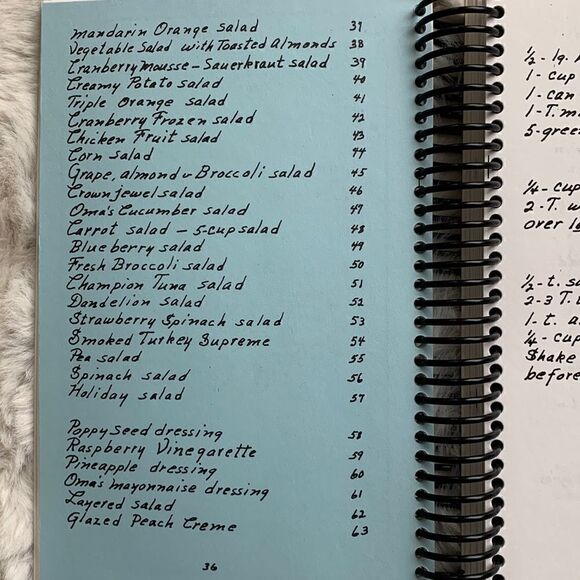 Mandarin Orange Salad 37
Vegetable Salad with Toasted Almonds 38
Cranberry mousse - Sauerkraut salad 39
Creamy Potato salad 40
Triple Orange salad 41
Cranberry Frozen salad 42
Chicken Fruit salad 43
Corn Salad 44
Grape, almond & Broccoli salad 45
Crown jewel salad 46
Oma's Cucumber salad 47
Carrot salad - 5-cup salad 48
Blueberry salad 49
Fresh Broccoli salad 50
Champion Tuna salad 51
Dandelion salad 52
Strawberry Spinach salad 53
Smoked Turkey Supreme 54
Pea salad 55
Spinach salad 56
Holiday salad 57
Poppy Seed dressing 58
Raspberry Vinegarette 59
Pineapple dressing 60
Oma's mayonnaise dressing 61
Layered salad 62
Glazed Peach Creme 63
36
½ - lg.
1 - cup
1 - can
1 - T. m
5 - green
¼ - cup
2 - T. w
over
½ - t. s
2-3 T.
1 - t. a
¼ - cup
Shake
before